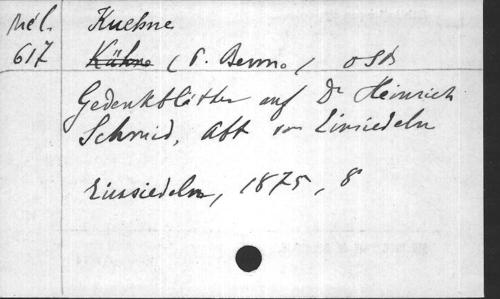 Mél. Kuehne
617 Kühne (P. Benno) OSB
Gedenkblätter auf Dr Heinrich
Schmid, Abt von Einsiedeln
Einsiedeln, 1875, 8°